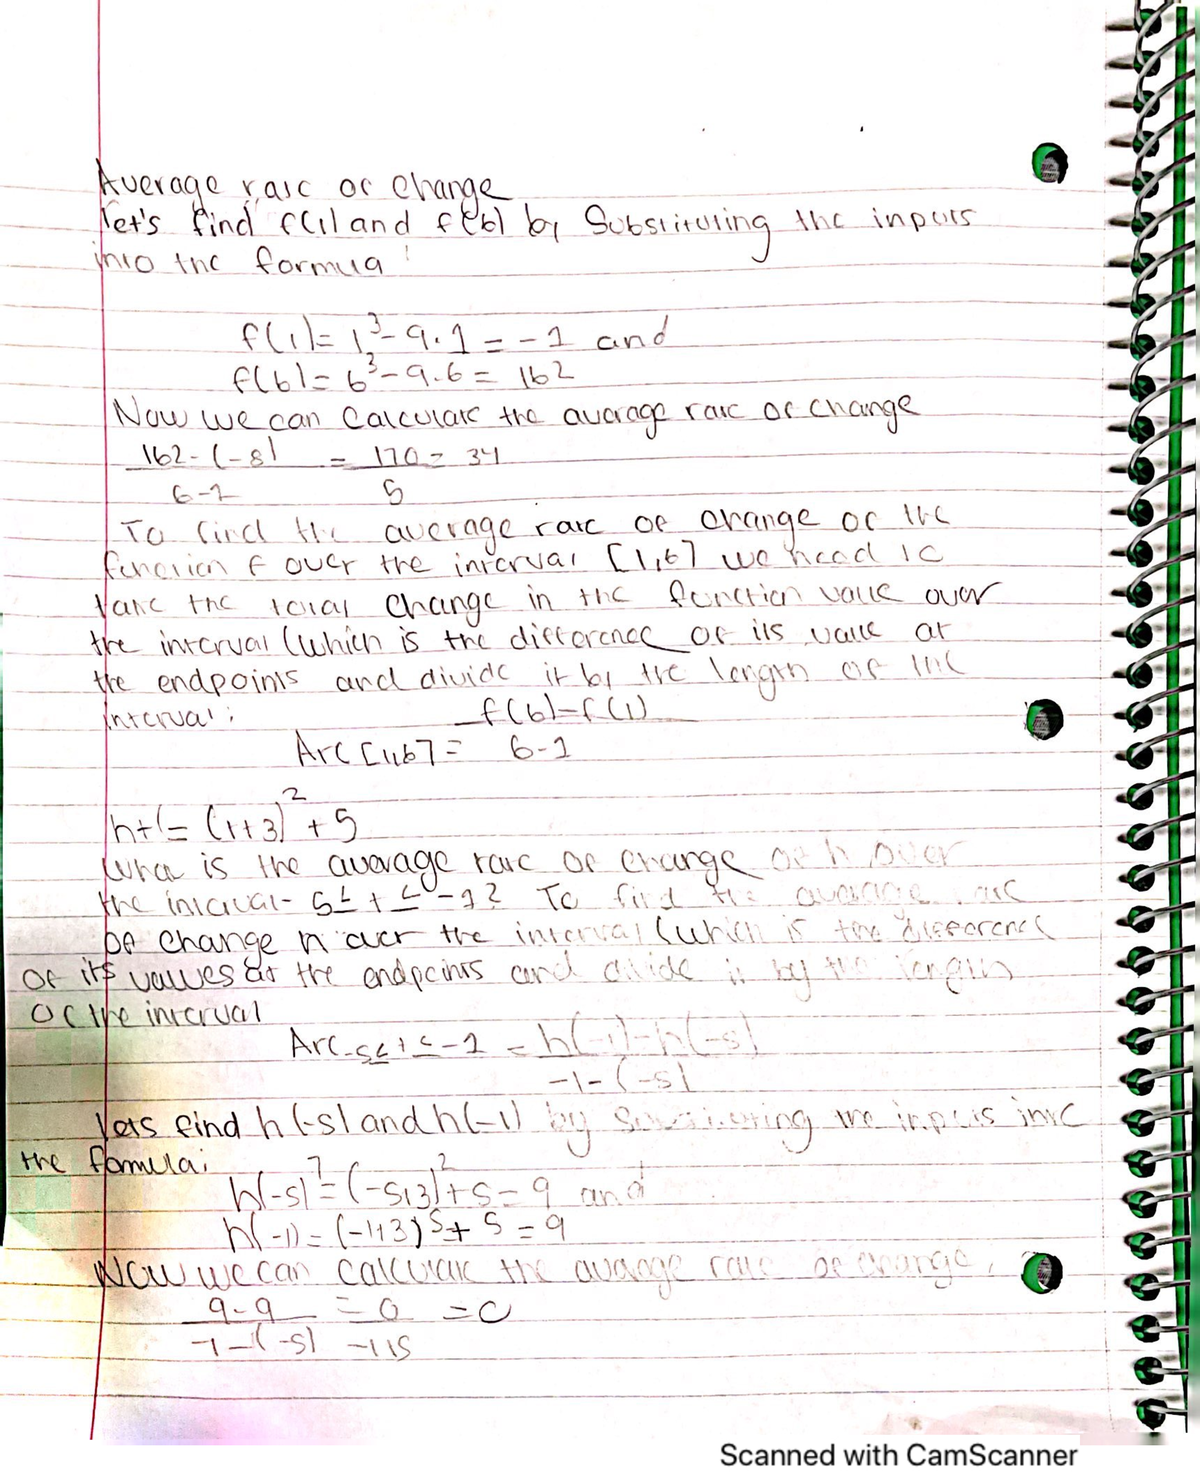 Average rate of change
let's find f(1) and f(6) by Substituting the inputs
into the formua
f(1) = 1³ - 9·1 = -1 and
f(6) = 6³ - 9·6 = 162
Now we can Calculate the average rate of change
162-(-8) = 170 = 34
6-1 5
To find the average rate of change of the
function f over the interval [1,6] we need to
take the total change in the function value over
the interval (which is the difference of its value at
the endpoints and divide it by the length of the
interval:
f(6)-f(1)
Arc [1,6] = 6-1
h+(= (t+3)² + 5
What is the average rate of change of h over
the interval -5≤t≤-1? To find the average rate
of change h over the interval (which is the difference
of its values at the endpoints and divide it by the length
of the interval
Arc-5≤t≤-1 = h(-1)-h(-5)
-1-(-5)
Lets find h(-5) and h(-1) by Substituting the inputs into
the fomula:
h(-5) = (-5+3)² + 5 = 9 and
h(-1) = (-1+3)⁵ + 5 = 9
Now we can calculate the average rate of change,
9-9 = 0 = 0
-1-(-5) -1+5
Scanned with CamScanner